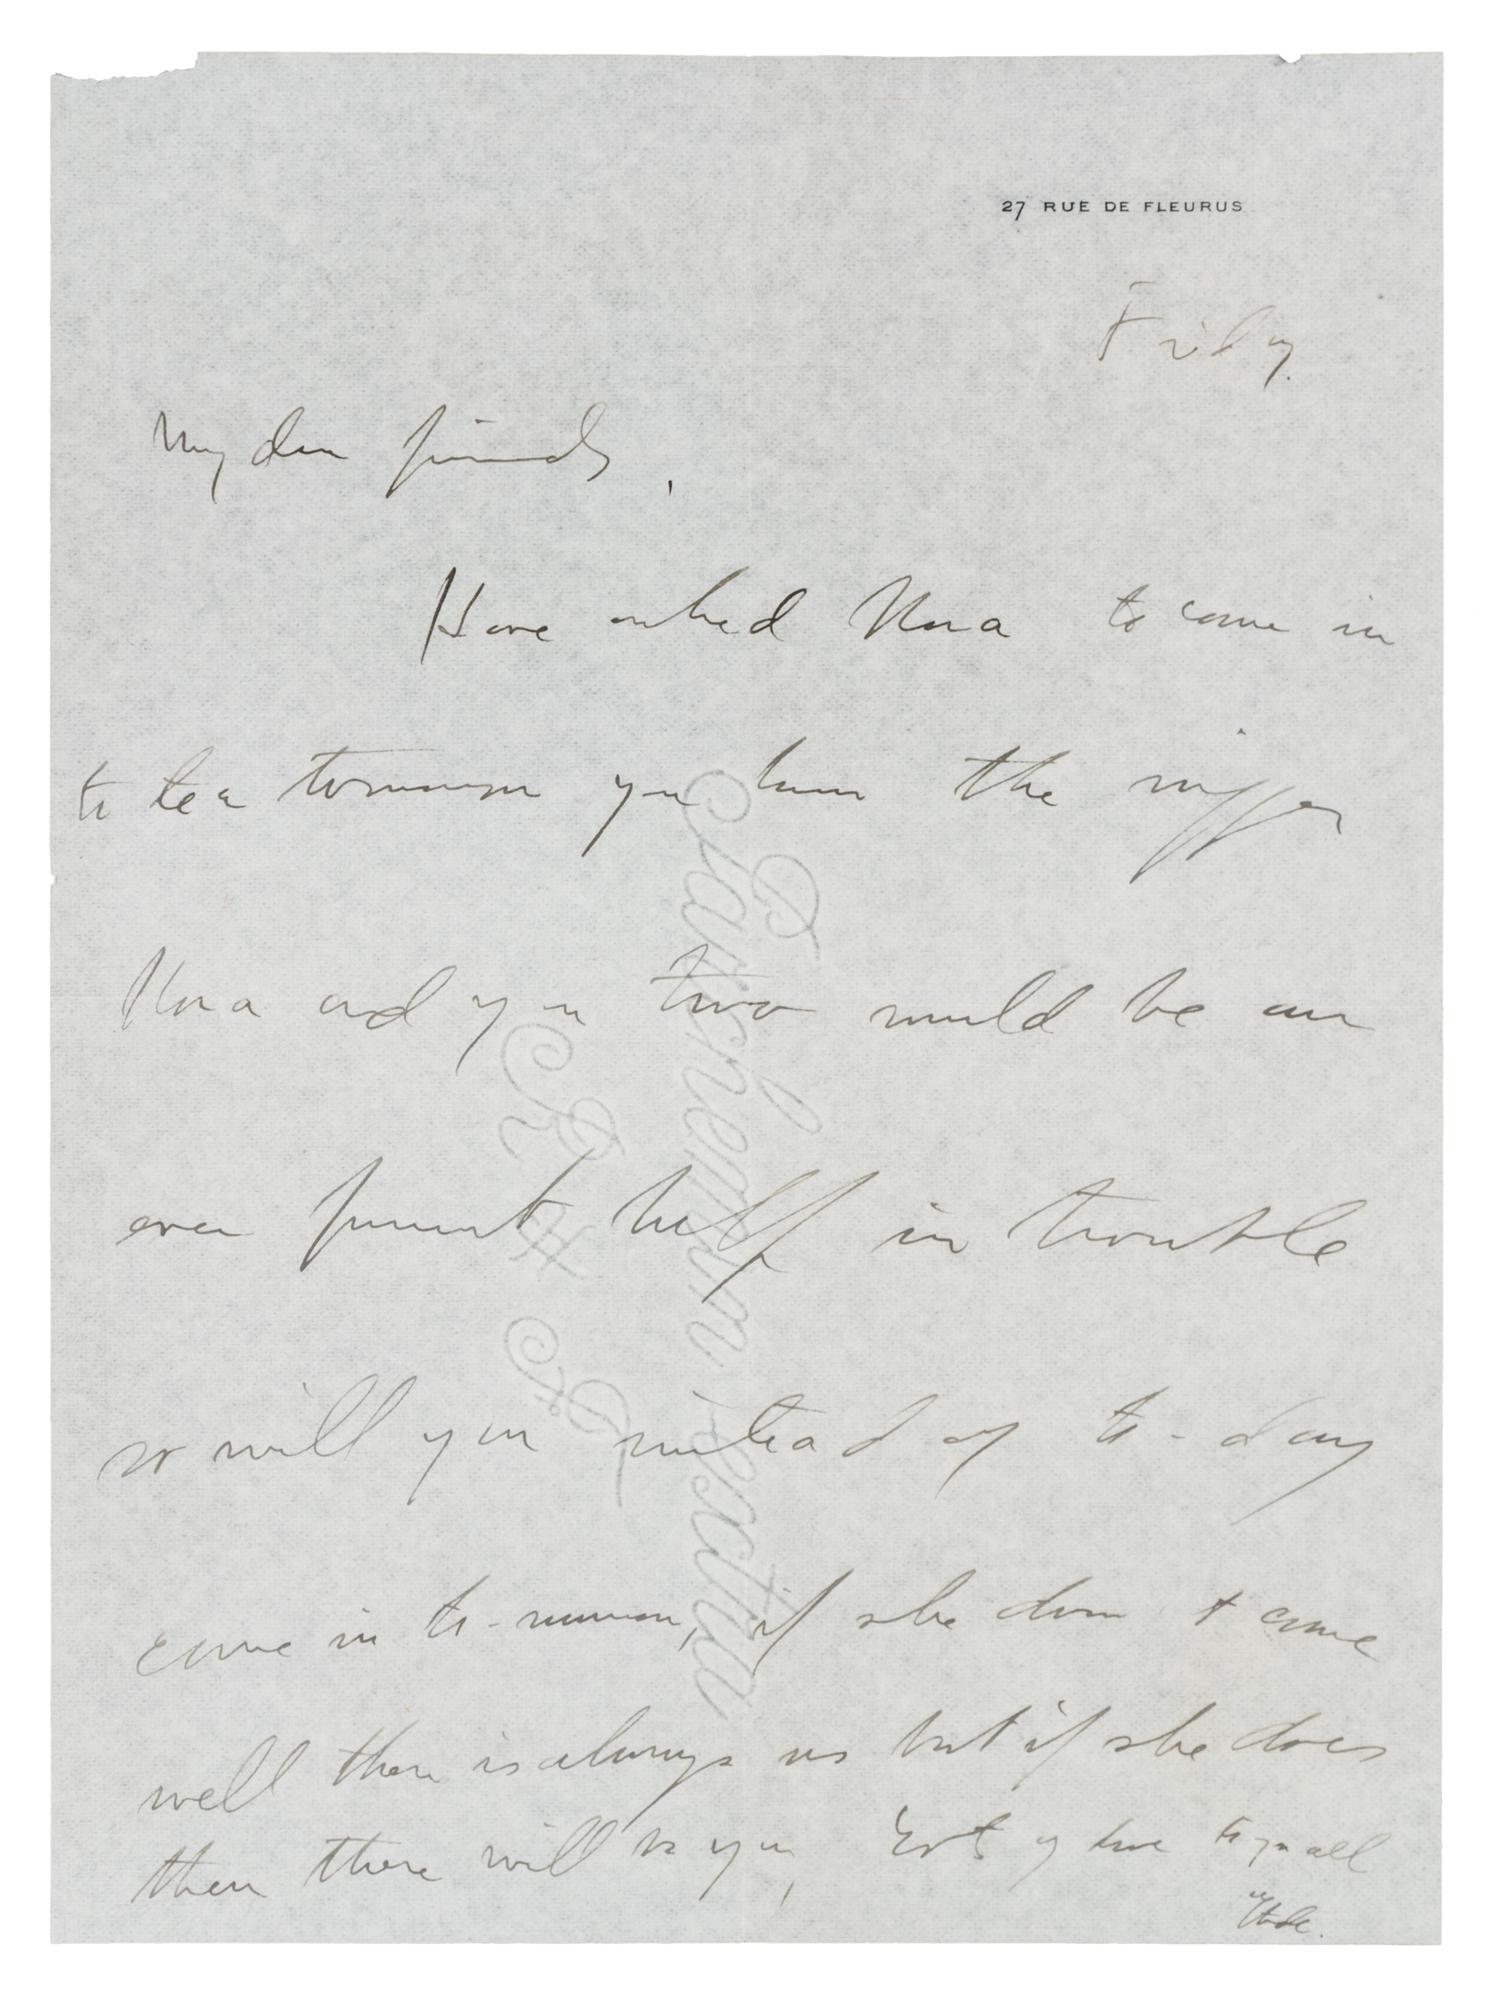 27 RUE DE FLEURUS
Friday.
My dear friends,
Have asked Nora to come in
to tea tomorrow you know the nigger
Nora and you two would be an
ever present help in trouble
so will you instead of to-day
come in to-morrow, if she doesn't come
well there is always us but if she does
then there will be you, Lots of love to you all
Parchemin Extra